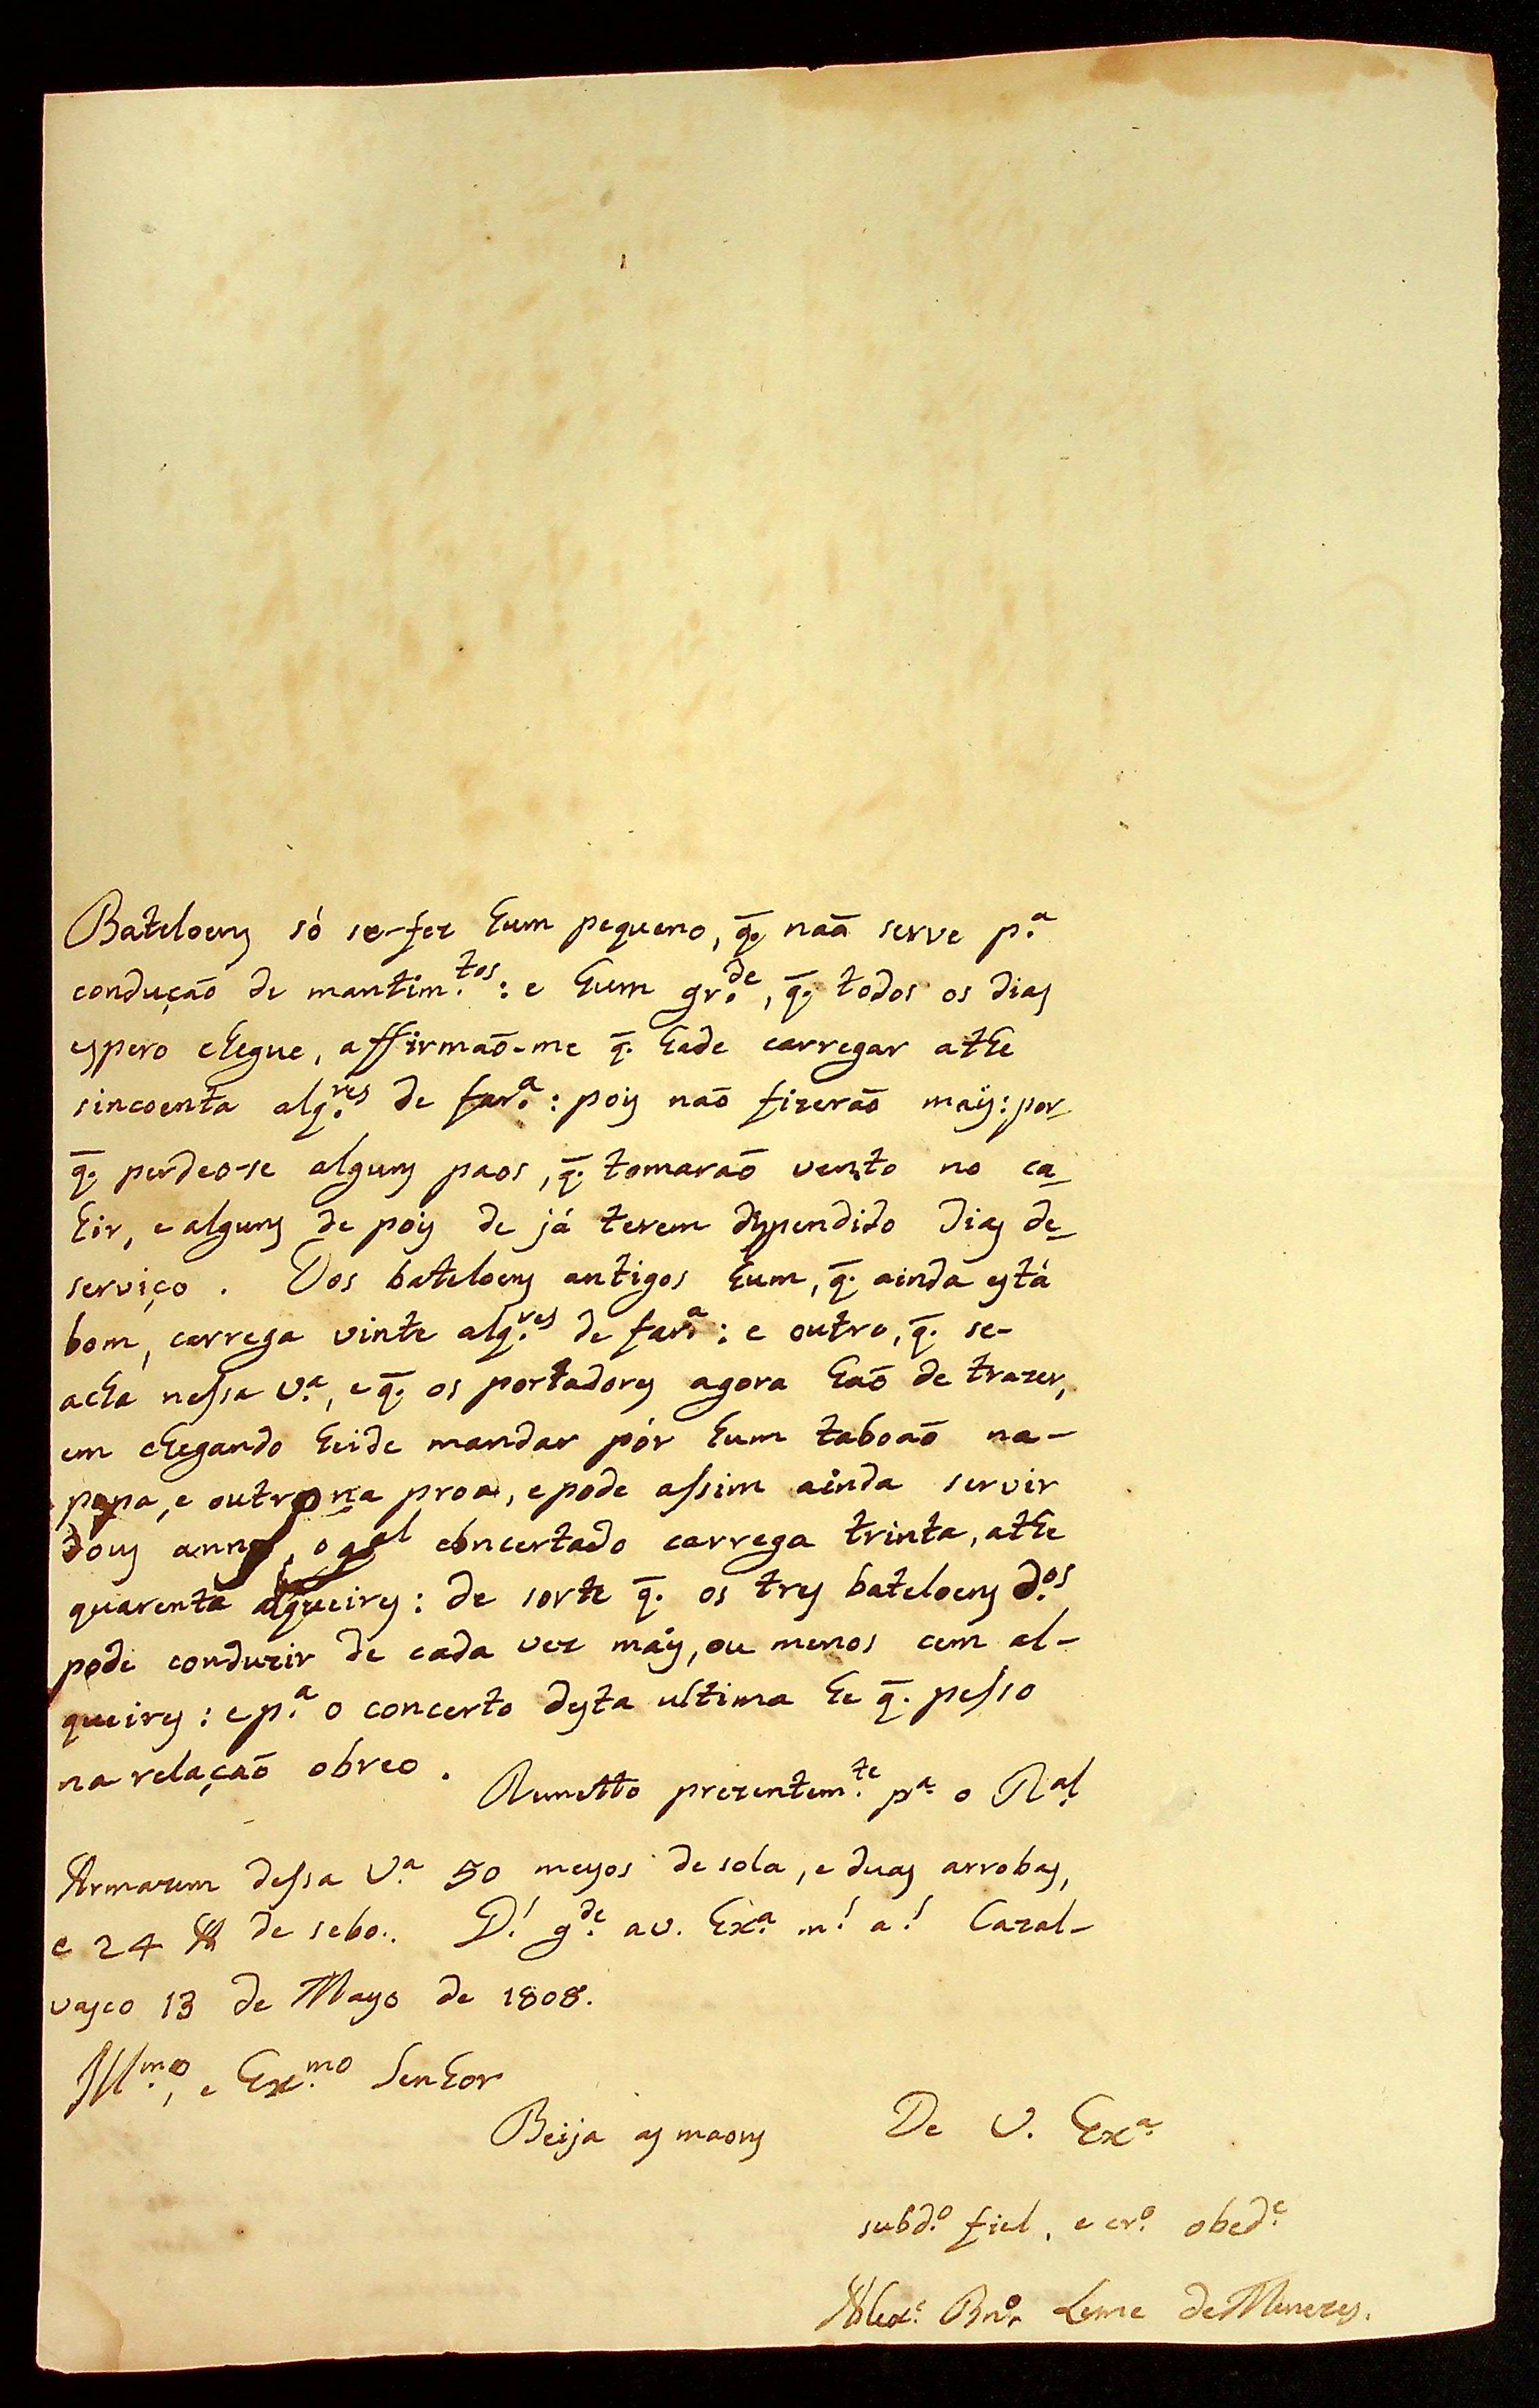 Bateloens só se-fez hum pequeno, q̄. naõ serve p.ª
conduçaõ de mantim.tos: e hum gr.de, q̄. todos os dias
espero chegue, affirmaõ-me q̄. hade carregar athe
sincoenta alq.res de far.ª: pois naõ fizeraõ mais: por
q̄. perdeo-se alguns paos, q̄. tomaraõ vento no ca
hir, e alguns de pois de já terem dispendido dias de
serviço. Dos bateloens antigos hum, q̄. ainda está
bom, carrega vinte alq.res de far.ª: e outro, q̄. se-
acha nessa V.ª, e q̄. os portadores agora haõ de trazer,
em chegando heide mandar pór hum taboaõ na-
popa, e outro na proa, e pode assim ainda servir
dous annos, o qal concertado carrega trinta, athe
quarenta alqueires: de sorte q̄. os tres bateloens d.os
pode conduzir de cada vez mais, ou menos cem al-
queires: e p.ª o concerto desta ultima he q̄. pesso
na relaçaõ o breo. Remetto prezentem.te p.ª o R.al
Armazem dessa V.ª 50 meyos de sola, e duas arrobas,
e 24 lb de sebo. D.s g.de a V. Ex.ª m.s a.s Cazal-
vasco 13 de Mayo de 1808.
Ill.mo, e Ex.mo Senhor
Beija as maons De V. Ex.ª
subd.o fiel, e cr.o obed.e
Alex.e Leme de Menezes.